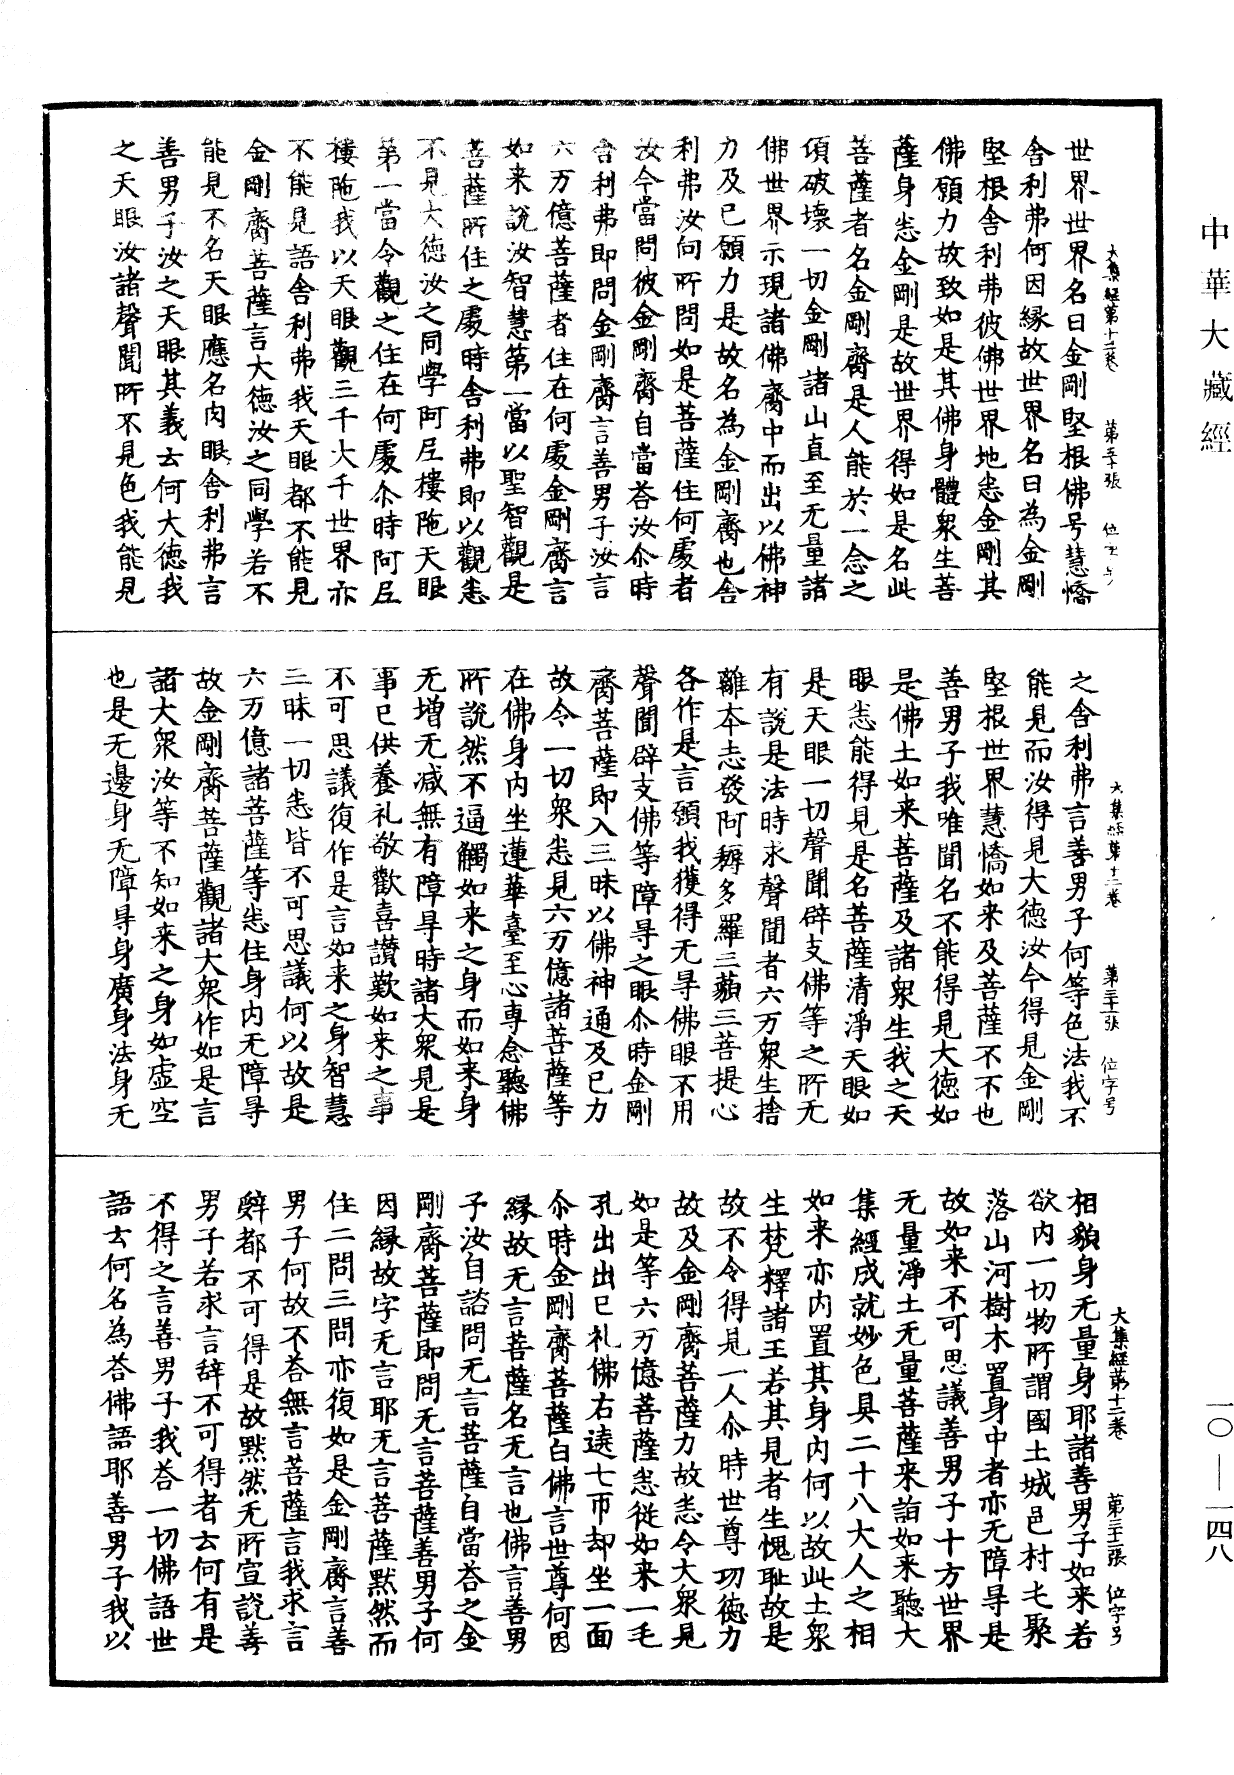 中華大藏經
大集經第十二卷　第三十張　位字号
世界世界名曰金剛堅根佛号慧憍
舍利弗何因緣故世界名曰為金剛
堅根舍利弗彼佛世界地悉金剛其
佛願力故致如是其佛身體眾生菩
薩身悉金剛是故世界得如是名此
菩薩者名金剛齊是人能於一念之
頃破壞一切金剛諸山直至无量諸
佛世界示現諸佛齊中而出以佛神
力及已願力是故名為金剛齊也舍
利弗汝向所問如是菩薩住何處者
汝今當問彼金剛齊自當荅汝尒時
舍利弗即問金剛齊言善男子汝言
六万億菩薩者住在何處金剛齊言
如来說汝智慧第一當以聖智觀是
菩薩所住之處時舍利弗即以觀悉
不見大德汝之同學阿尼樓陁天眼
第一當令觀之住在何處尒時阿尼
樓陁我以天眼觀三千大千世界亦
不能見語舍利弗我天眼都不能見
金剛齊菩薩言大德汝之同學若不
能見不名天眼應名肉眼舍利弗言
善男子汝之天眼其義云何大德我
之天眼汝諸聲聞所不見色我能見
大集經第十二卷　第三十一張　位字号
之舍利弗言善男子何等色法我不
能見而汝得見大德汝今得見金剛
堅根世界慧憍如来及菩薩不不也
善男子我唯聞名不能得見大德如
是佛土如来菩薩及諸眾生我之天
眼悉能得見是名菩薩清淨天眼如
是天眼一切聲聞辟支佛等之所无
有說是法時求聲聞者六万眾生捨
離本志發阿耨多羅三藐三菩提心
各作是言願我獲得无㝵佛眼不用
聲聞辟支佛等障㝵之眼尒時金剛
齊菩薩即入三昧以佛神通及已力
故令一切眾悉見六万億諸菩薩等
在佛身内坐蓮華臺至心專念聽佛
所說然不逼觸如来之身而如来身
无增无减無有障㝵時諸大眾見是
事已供養礼敬歡喜讃歎如来之事
不可思議復作是言如来之身智慧
三昧一切悉皆不可思議何以故是
六万億諸菩薩等悉住身内无障㝵
故金剛齊菩薩觀諸大眾作如是言
諸大眾汝等不知如来之身如虛空
也是无邊身无障㝵身廣身法身无
大集經第十二卷　第三十二張　位字号
相貌身无量身耶諸善男子如来若
欲内一切物所謂國土城邑村屯聚
落山河樹木置身中者亦无障㝵是
故如来不可思議善男子十方世界
无量淨土无量菩薩来詣如来聽大
集經成就妙色具二十八大人之相
如来亦内置其身内何以故此土眾
生梵釋諸王若其見者生愧耻故是
故不令得見一人尒時世尊功德力
故及金剛齊菩薩力故悉令大眾見
如是等六万億菩薩悉從如来一毛
孔出出已礼佛右遶七帀却坐一面
尒時金剛齊菩薩白佛言世尊何因
緣故无言菩薩名无言也佛言善男
子汝自諮問无言菩薩自當荅之金
剛齊菩薩即問无言菩薩善男子何
因緣故字无言耶无言菩薩默然而
住二問三問亦復如是金剛齊言善
男子何故不荅無言菩薩言我求言
辤都不可得是故默然无所宣說善
男子若求言辞不可得者云何有是
不得之言善男子我荅一切佛語世
語云何名為荅佛語耶善男子我以
一〇—一四八